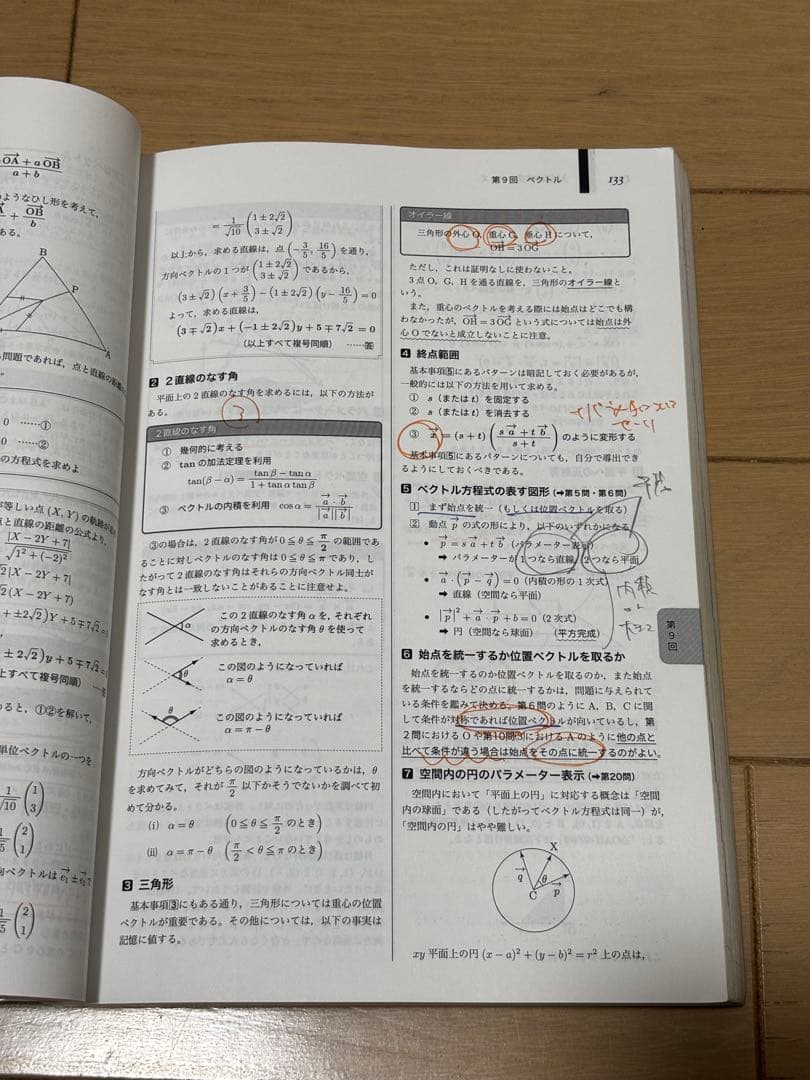 OA + a OB
a + b
のようなひし形を考えて,
OB
b
ある.
B
P
A
問題であれば,点と直線の距離の
0 ……①
0 ……②
の方程式を求めよ
が等しい点 (X, Y) の軌跡が
点と直線の距離の公式より,
|X − 2Y + 7|
√1² + (−2)²
2|X − 2Y + 7|
√2 (X − 2Y + 7)
) Y + 5 ∓ 7√2
± 2√2) y + 5 ∓ 7√2 = 0
以上すべて複号同順)
めると,①②を解いて,
単位ベクトルの一つを
1/√10 (1 3)
(2 1)
ベクトルは e₁ ± e₂ で
(2 1)
第9回 ベクトル 133
= 1/√10 (1 ± 2√2 3 ± √2)
以上から,求める直線は,点 (−3/5, 16/5) を通り,
方向ベクトルの1つが (1 ± 2√2 3 ± √2) であるから,
(3 ± √2)(x + 3/5) − (1 ± 2√2)(y − 16/5) = 0
よって,求める直線は,
(3 ∓ √2)x + (−1 ± 2√2)y + 5 ∓ 7√2 = 0
(以上すべて複号同順) ……答
2 2直線のなす角
平面上の2直線のなす角を求めるには,以下の方法が
ある.
3
2直線のなす角
① 幾何的に考える
② tan の加法定理を利用
tan(β − α) = (tan β − tan α)/(1 + tan α tan β)
③ ベクトルの内積を利用 cos α = (a · b)/(|a||b|)
③の場合は,2直線のなす角が 0 ≦ θ ≦ π/2 の範囲であ
ることに対しベクトルのなす角は 0 ≦ θ ≦ π であり,し
たがって2直線のなす角はそれらの方向ベクトル同士が
なす角とは一致しないことがあることに注意せよ.
α
この2直線のなす角 α を,それぞれ
の方向ベクトルのなす角 θ を使って
求めるとき,
θ
この図のようになっていれば
α = θ
θ
この図のようになっていれば
α = π − θ
方向ベクトルがどちらの図のようになっているかは,θ
を求めてみて,それが π/2 以下かそうでないかを調べて初
めて分かる.
(i) α = θ (0 ≦ θ ≦ π/2 のとき)
(ii) α = π − θ (π/2 < θ ≦ π のとき)
3 三角形
基本事項3にもある通り,三角形については重心の位置
ベクトルが重要である.その他については,以下の事実は
記憶に値する.
オイラー線
三角形の外心 O, 重心 G, 垂心 H について,
OH = 3OG
ただし,これは証明なしに使わないこと.
3点 O, G, H を通る直線を,三角形のオイラー線と
いう.
また,重心のベクトルを考える際には始点はどこでも構
わなかったが,OH = 3OG という式については始点は外
心 O でないと成立しないことに注意.
4 終点範囲
基本事項5にあるパターンは暗記しておく必要があるが,
一般的には以下の方法を用いて求める.
① s(または t)を固定する
② s(または t)を消去する
③ x = (s + t) ((s a + t b)/(s + t)) のように変形する
基本事項5にあるパターンについても,自分で導出でき
るようにしておくべきである.
5 ベクトル方程式の表す図形 (➡第5問・第6問)
1 まず始点を統一(もしくは位置ベクトルを取る)
2 動点 p の式の形により,以下のいずれかになる
• p = s a + t b (パラメーター表示)
→ パラメーターが1つなら直線,2つなら平面
• a · (p − q) = 0 (内積の形の1次式)
→ 直線(空間なら平面)
• |p|² + a · p + b = 0 (2次式)
→ 円(空間なら球面) (平方完成)
内積
第9回
6 始点を統一するか位置ベクトルを取るか
始点を統一するのか位置ベクトルを取るのか,また始点
を統一するならどの点に統一するかは,問題に与えられて
いる条件を鑑みて決める.第6問のように A, B, C に関
して条件が対称であれば位置ベクトルが向いているし,第
2問における O や第10問(3)における A のように他の点と
比べて条件が違う場合は始点をその点に統一するのがよい.
7 空間内の円のパラメーター表示 (➡第20問)
空間内において「平面上の円」に対応する概念は「空間
内の球面」である(したがってベクトル方程式は同一)が,
「空間内の円」はやや難しい.
X
q
θ
C
p
xy 平面上の円 (x − a)² + (y − b)² = r² 上の点は,